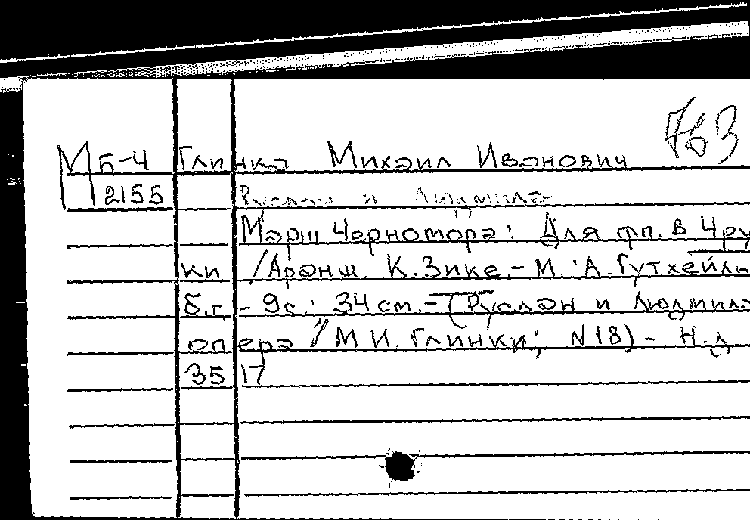 763
Мб-4 Глинка Михаил Иванович
2155 Руслан и Людмила
Марш Черномора: Для фп. в 4 ру
ки /Аранж. К. Зике.- М.: А. Гутхейль
б.г. - 9с.; 34 см. - (Руслан и Людмила
опера / М.И. Глинки; N 18) - Н.д.
3517